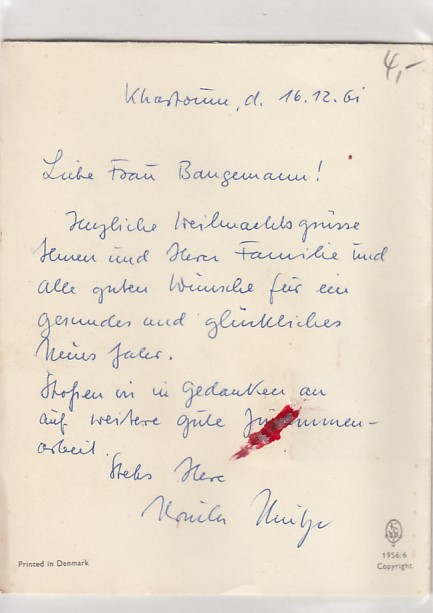 4,-
Khartoum, d. 16.12.61
Liebe Frau Bangemann!
Herzliche Weihnachtsgrüsse
Ihnen und Ihrer Familie und
alle guten Wünsche für ein
gesundes und glückliches
Neues Jahr.
Stoßen wir in Gedanken an
auf weitere gute Zusammen-
arbeit.
Stets Ihre
Printed in Denmark
1956/6
Copyright